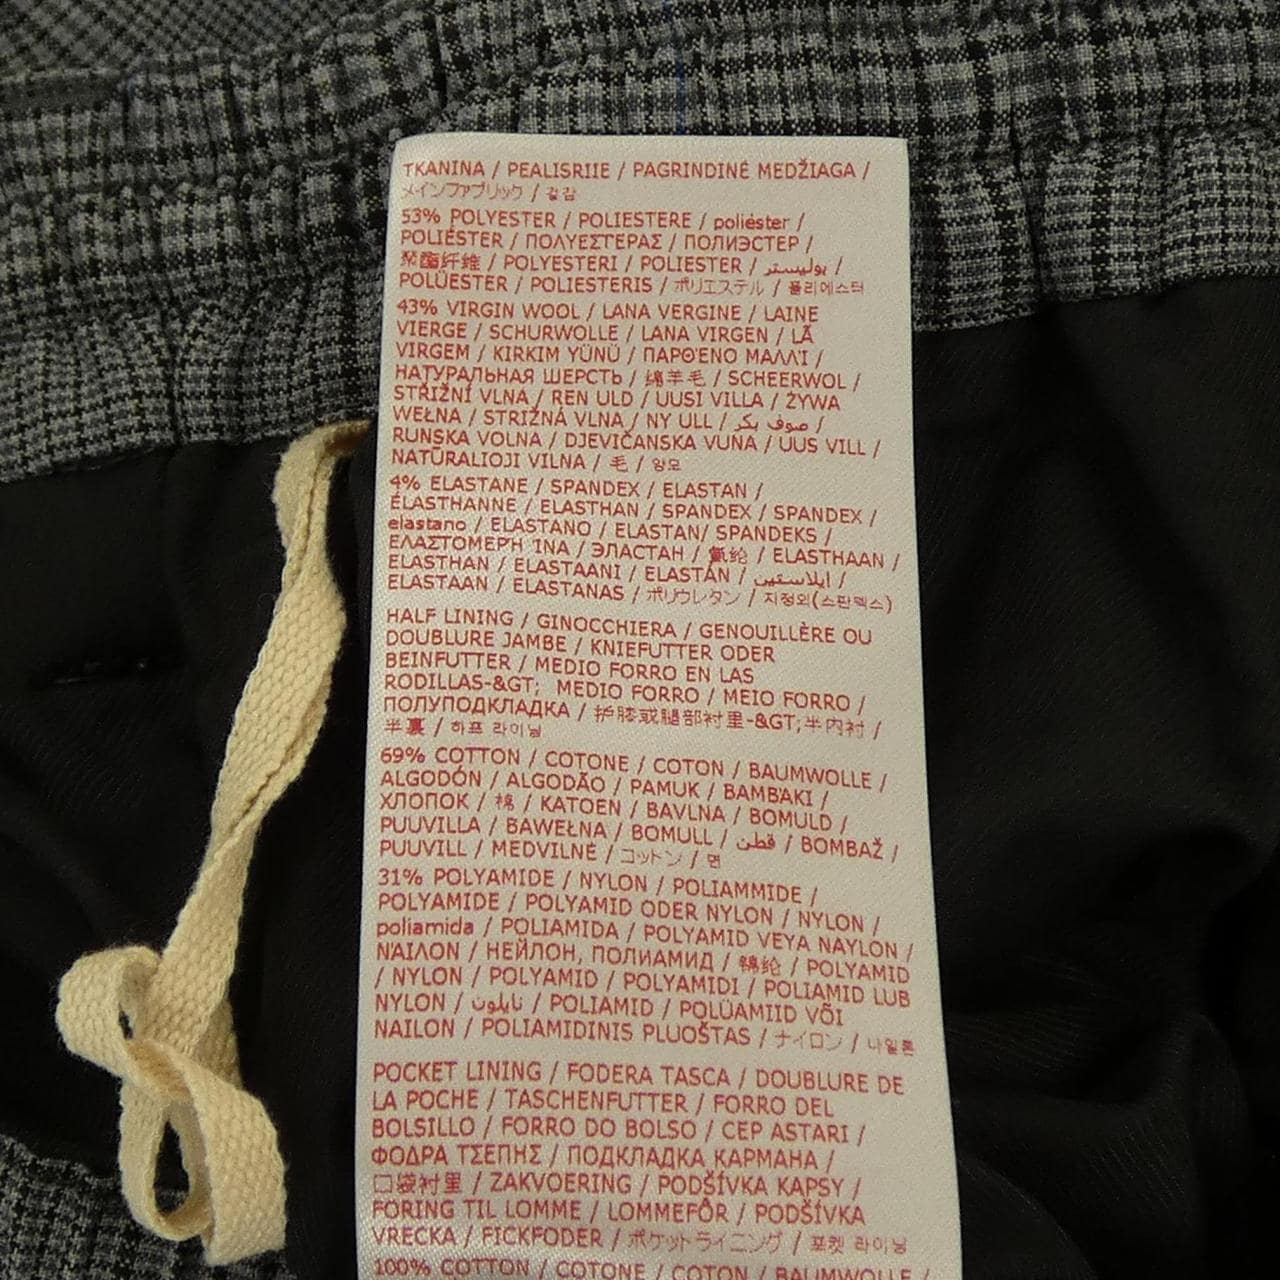 TKANINA / PEALISRIIE / PAGRINDINĖ MEDŽIAGA /
メインファブリック / 겉감
53% POLYESTER / POLIESTERE / poliéster /
POLIÉSTER / ΠΟΛΥΕΣΤΕΡΑΣ / ПОЛИЭСТЕР /
聚酯纤维 / POLYESTERI / POLIESTER / بوليستر /
POLÜESTER / POLIESTERIS / ポリエステル / 폴리에스터
43% VIRGIN WOOL / LANA VERGINE / LAINE
VIERGE / SCHURWOLLE / LANA VIRGEN / LÃ
VIRGEM / KIRKIM YÜNÜ / ΠΑΡΘΈΝΟ ΜΑΛΛΊ /
НАТУРАЛЬНАЯ ШЕРСТЬ / 绵羊毛 / SCHEERWOL /
STŘIŽNÍ VLNA / REN ULD / UUSI VILLA / ŻYWA
WEŁNA / STRIŽNÁ VLNA / NY ULL / صوف بكر /
RUNSKA VOLNA / DJEVIČANSKA VUNA / UUS VILL /
NATŪRALIOJI VILNA / 毛 / 양모
4% ELASTANE / SPANDEX / ELASTAN /
ÉLASTHANNE / ELASTHAN / SPANDEX / SPANDEX /
elastano / ELASTANO / ELASTAN/ SPANDEKS /
ΕΛΑΣΤΟΜΕΡΉ ΊΝΑ / ЭЛАСТАН / 氨纶 / ELASTHAAN /
ELASTHAN / ELASTAANI / ELASTÁN / ايلاستين /
ELASTAAN / ELASTANAS / ポリウレタン / 지정외(스판덱스)
HALF LINING / GINOCCHIERA / GENOUILLÈRE OU
DOUBLURE JAMBE / KNIEFUTTER ODER
BEINFUTTER / MEDIO FORRO EN LAS
RODILLAS-&GT; MEDIO FORRO / MEIO FORRO /
ПОЛУПОДКЛАДКА / 护膝或腿部衬里-&GT;半内衬 /
半裏 / 하프 라이닝
69% COTTON / COTONE / COTON / BAUMWOLLE /
ALGODÓN / ALGODÃO / PAMUK / ΒΑΜΒΆΚΙ /
ХЛОПОК / 棉 / KATOEN / BAVLNA / BOMULD /
PUUVILLA / BAWEŁNA / BOMULL / قطن / BOMBAŽ /
PUUVILL / MEDVILNĖ / コットン / 면
31% POLYAMIDE / NYLON / POLIAMMIDE /
POLYAMIDE / POLYAMID ODER NYLON / NYLON /
poliamida / POLIAMIDA / POLYAMID VEYA NAYLON /
ΝΆΙΛΟΝ / НЕЙЛОН, ПОЛИАМИД / 锦纶 / POLYAMID
/ NYLON / POLYAMID / POLYAMIDI / POLIAMID LUB
NYLON / نايلون / POLIAMID / POLÜAMIID VÕI
NAILON / POLIAMIDINIS PLUOŠTAS / ナイロン / 나일론
POCKET LINING / FODERA TASCA / DOUBLURE DE
LA POCHE / TASCHENFUTTER / FORRO DEL
BOLSILLO / FORRO DO BOLSO / CEP ASTARI /
ΦΟΔΡΑ ΤΣΕΠΗΣ / ПОДКЛАДКА КАРМАНА /
口袋衬里 / ZAKVOERING / PODŠÍVKA KAPSY /
FORING TIL LOMME / LOMMEFÔR / PODŠÍVKA
VRECKA / FICKFODER / ポケットライニング / 포켓 라이닝
100% COTTON / COTONE / COTON / BAUMWOLLE /